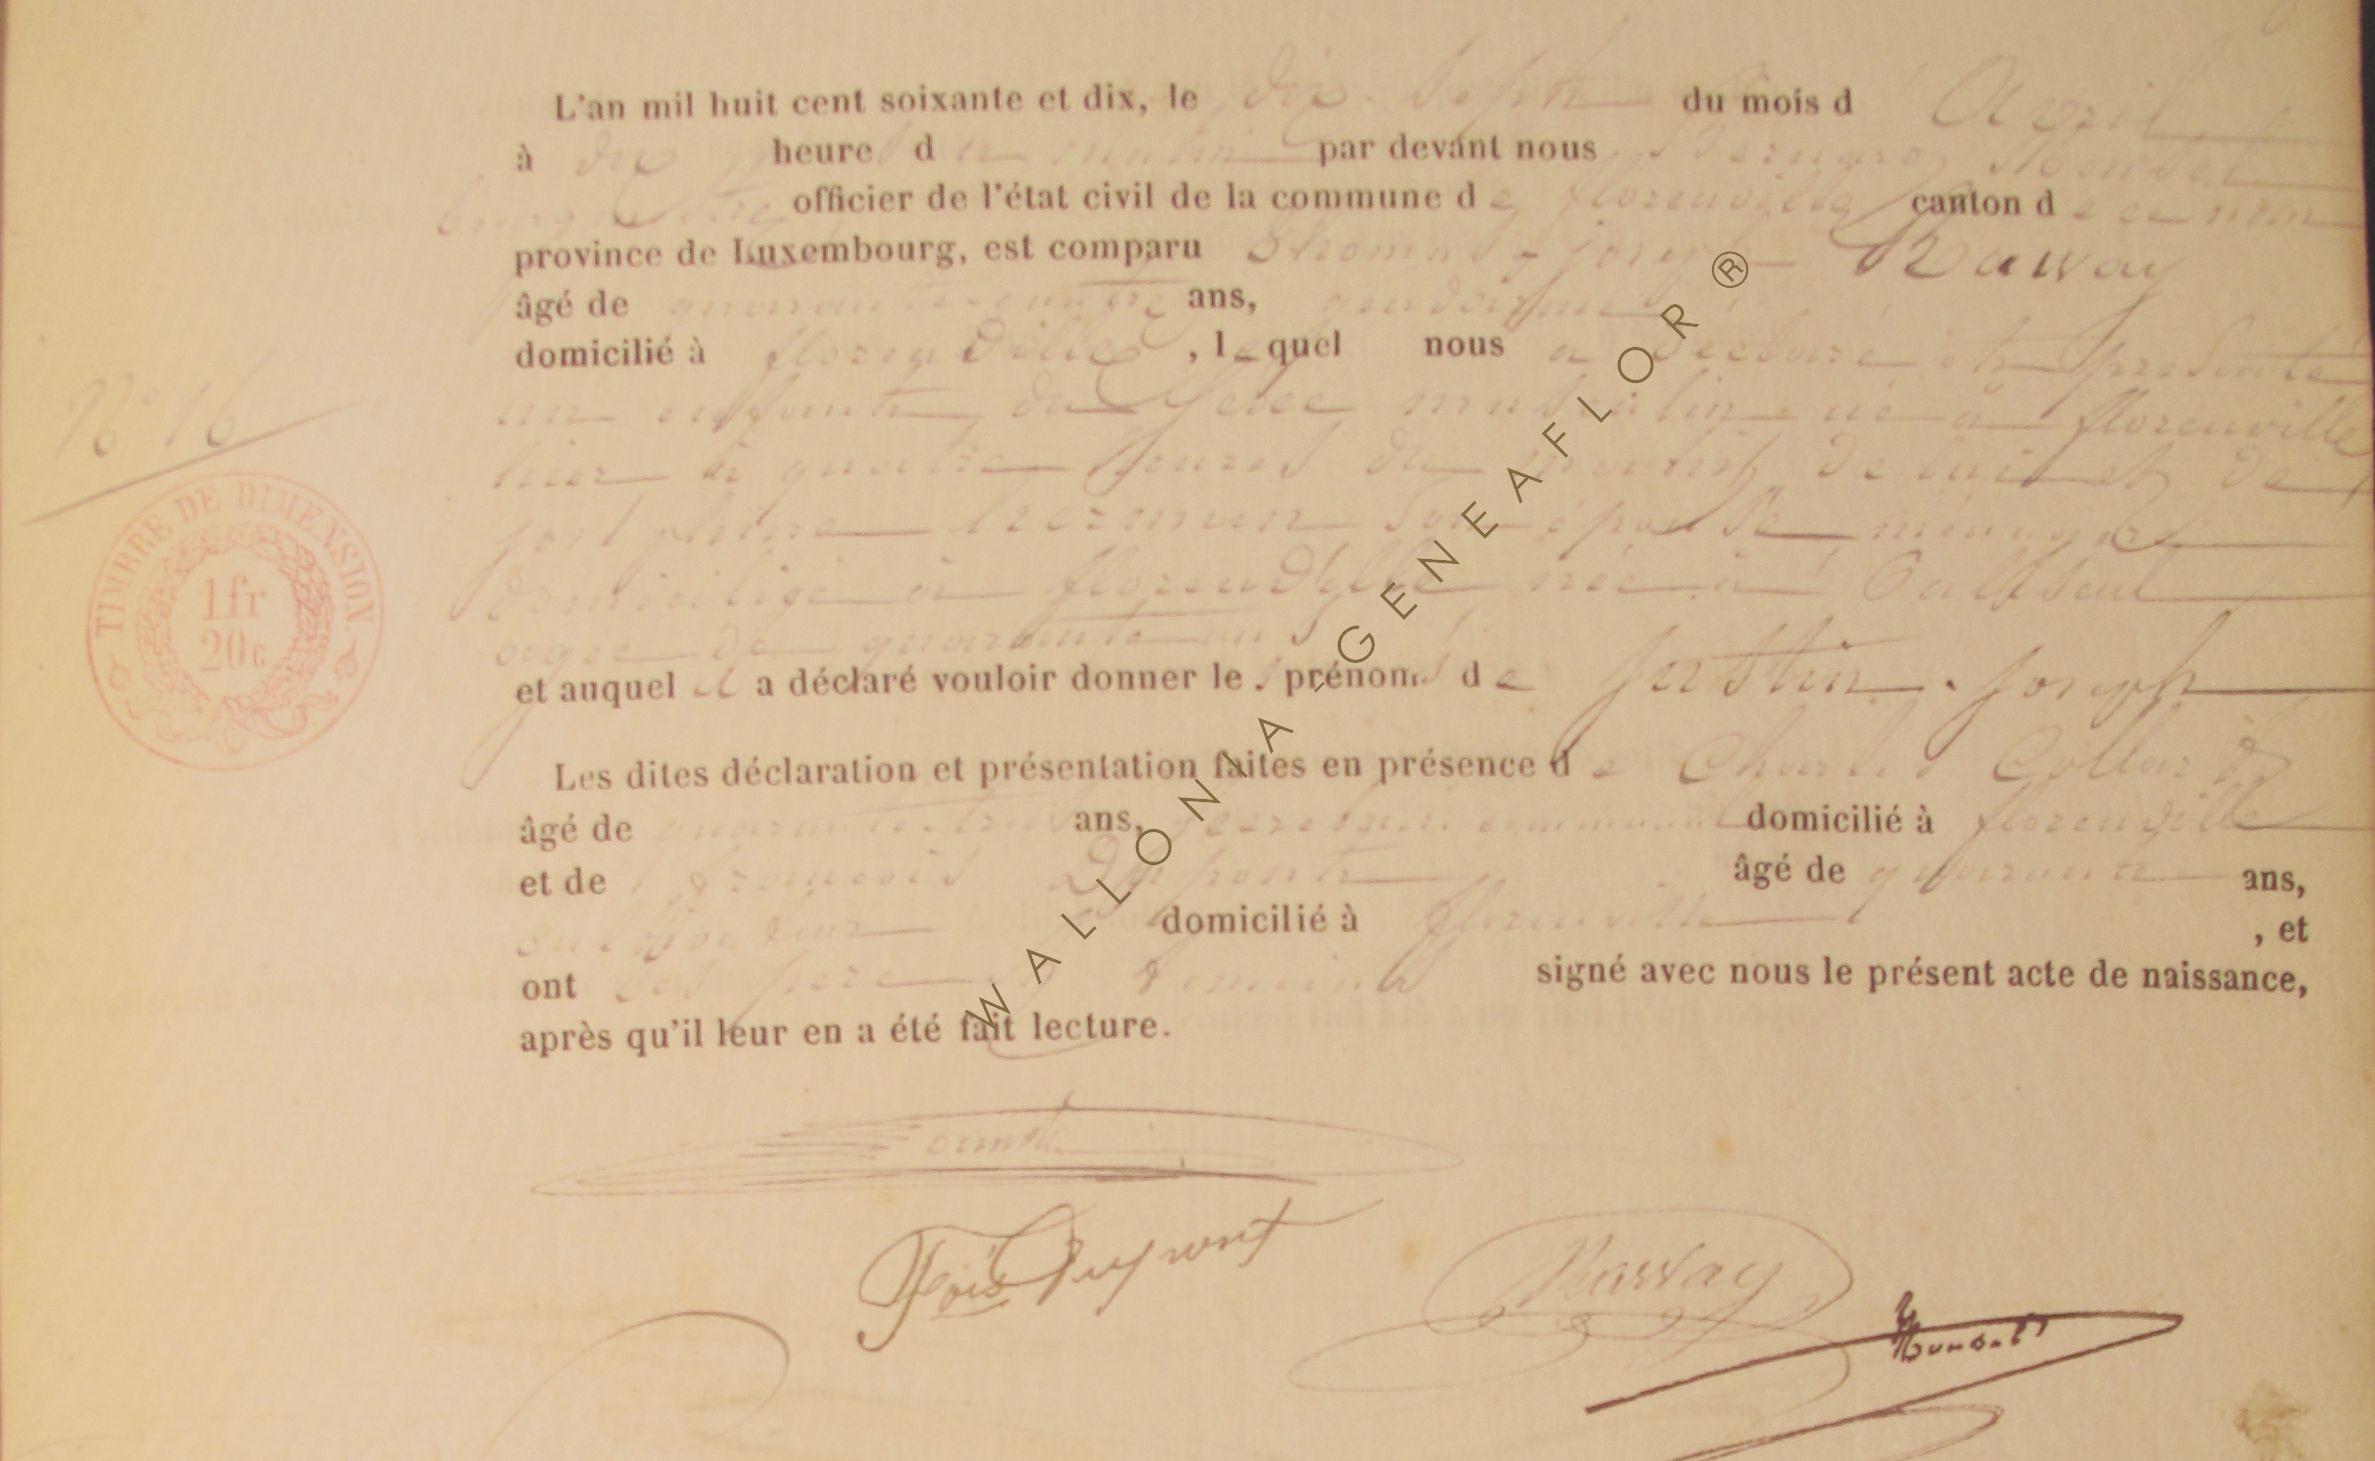 L'an mil huit cent soixante et dix, le dix Sept du mois d Avril
à dix heure d u matin par devant nous Bernard
bourgmestre officier de l'état civil de la commune d e florenville canton d e ce nom
province de Luxembourg, est comparu Thomas joseph Raway
âgé de quarante quatre ans, gendarme
domicilié à florenville , l e quel nous a déclaré et présenté
un enfant du Sexe masculin né à florenville
hier à quatre heures du matin de lui et de
joséphine herman son épouse ménagère
domiciliée à florenville née à
agée de quarante ans
et auquel il a déclaré vouloir donner le s prénoms d e justin . joseph
N° 16
TIMBRE DE DIMENSION.
1fr
20c
Les dites déclaration et présentation faites en présence d e Charles Collard
âgé de quarante trois ans, secrétaire communal domicilié à florenville
et de françois Dupont âgé de quarante ans,
cultivateur domicilié à florenville , et
ont les père et temoins signé avec nous le présent acte de naissance,
après qu'il leur en a été fait lecture.
Fois Dupont
Raway
WALLONIA GENEAFLOR ®